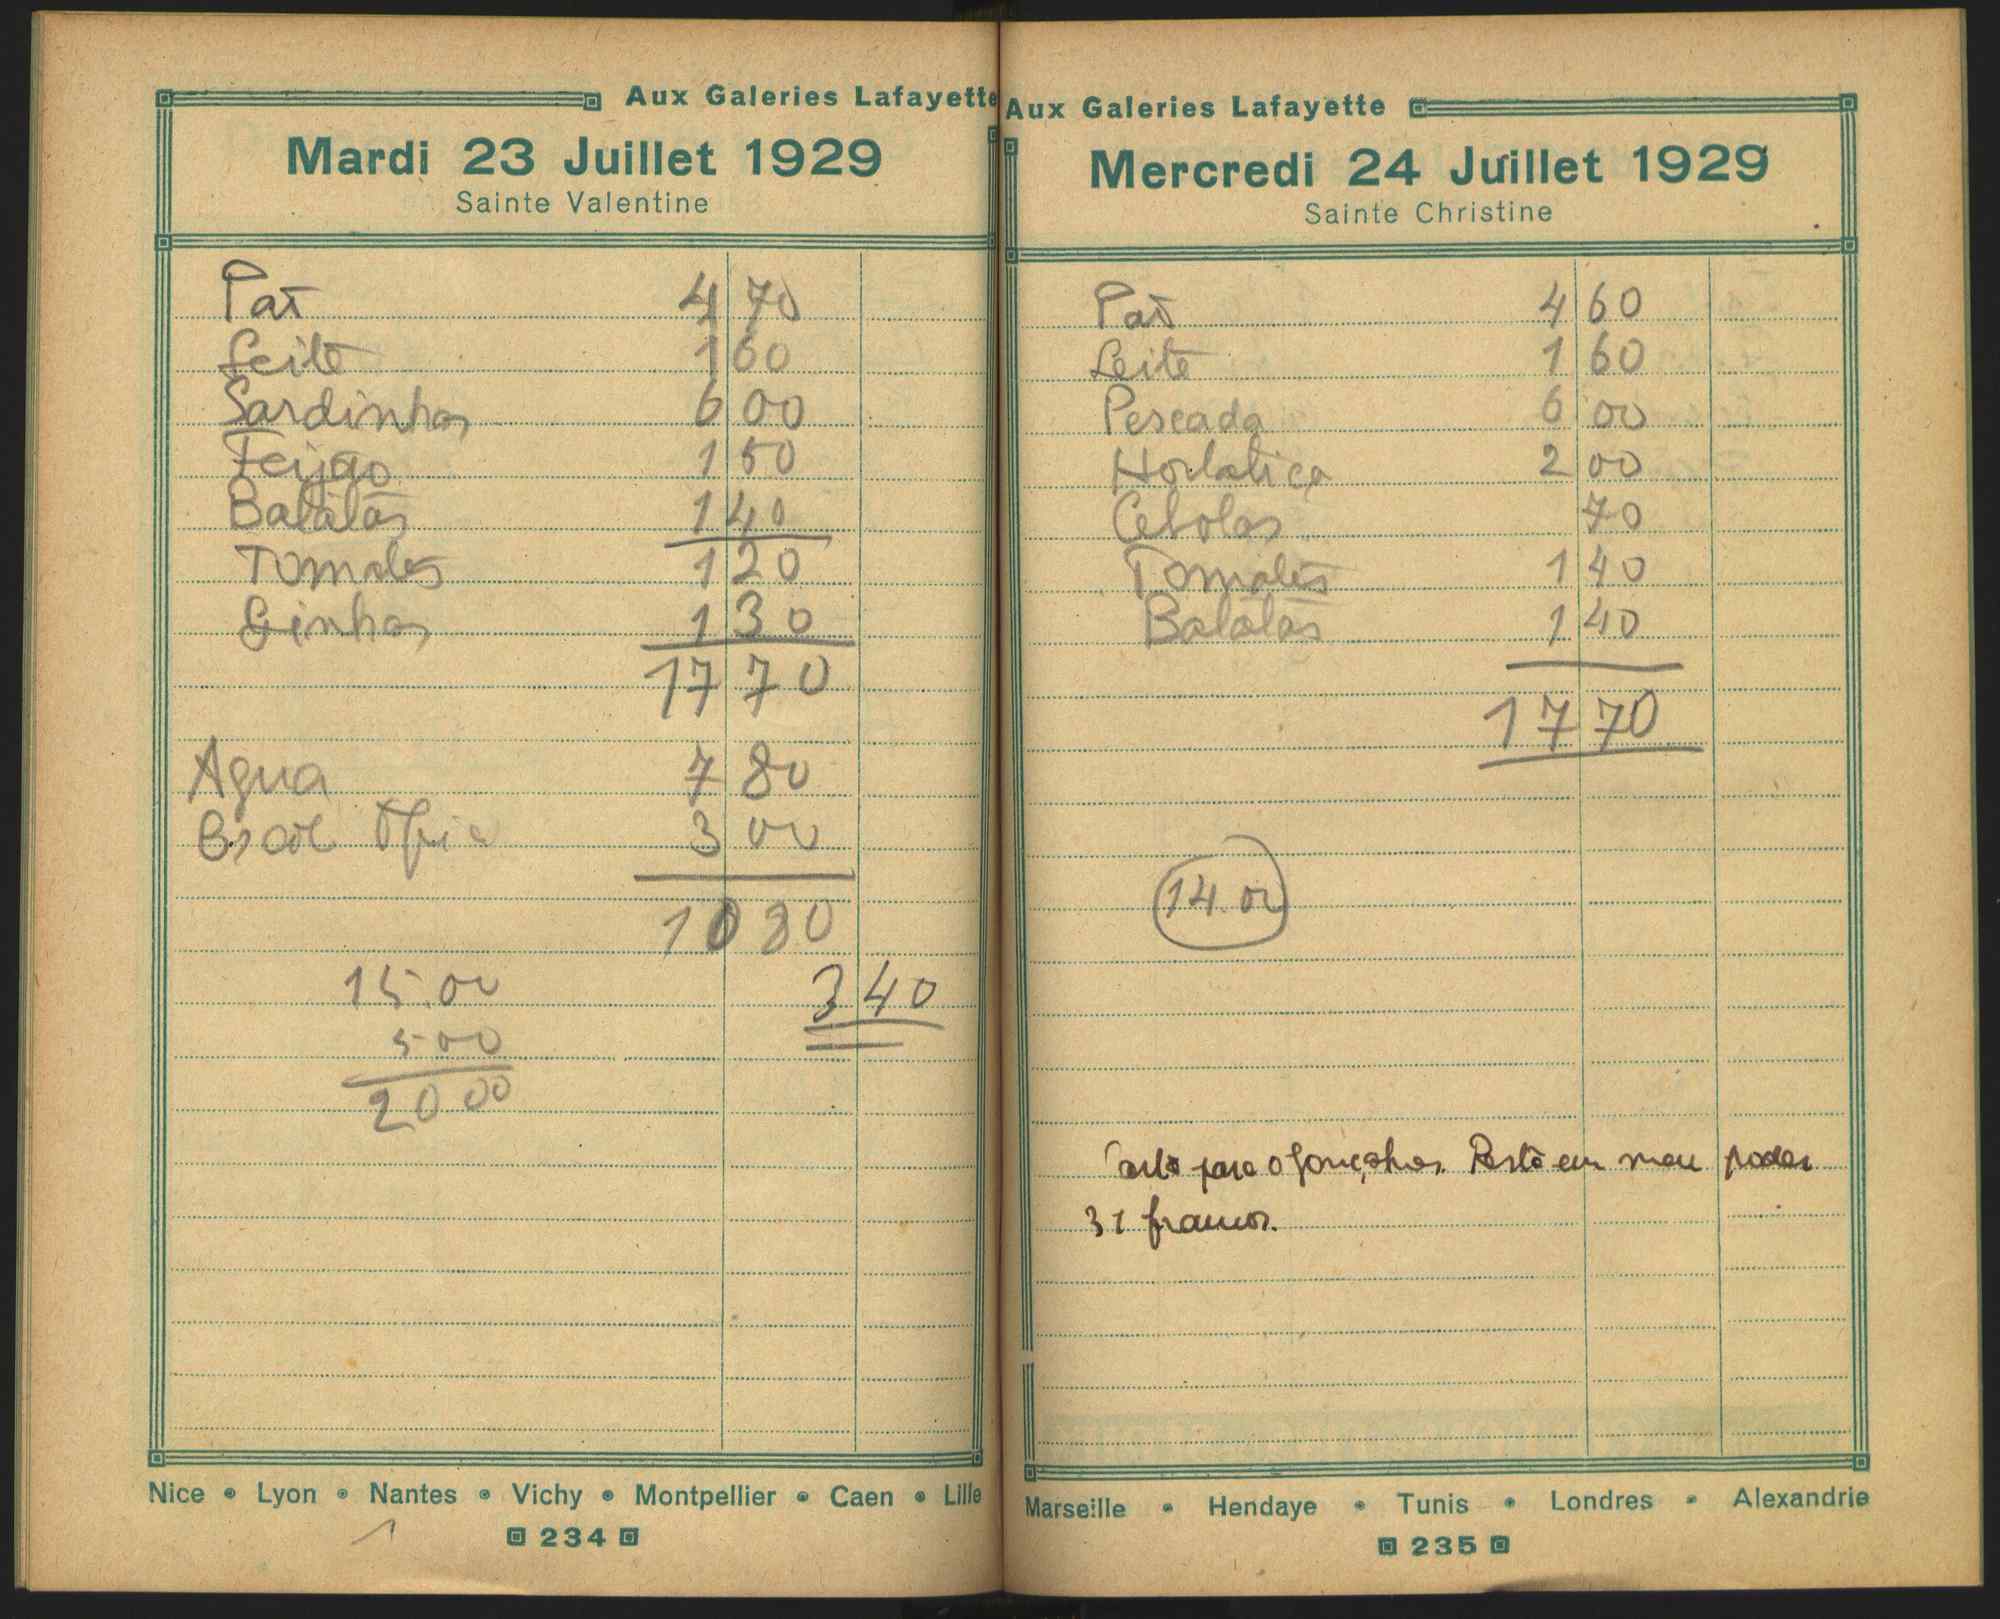 Aux Galeries Lafayette
Mardi 23 Juillet 1929
Sainte Valentine
Pão 4 70
Leite 1 60
Sardinhas 6 00
Feijão 1 50
Batatas 1 40
Tomates 1 20
Ginhas 1 30
17 70
Agua 7 80
3 00
10 80
15.00
3 40
5 00
20 00
Nice • Lyon • Nantes • Vichy • Montpellier • Caen • Lille
234
Aux Galeries Lafayette
Mercredi 24 Juillet 1929
Sainte Christine
Pão 4 60
Leite 1 60
Pescada 6 00
Hortaliça 2 00
Cebolas 70
Tomates 1 40
Batatas 1 40
17 70
14.00
para o Gonçalves. Resta em meu poder
31 francos.
Marseille • Hendaye • Tunis • Londres • Alexandrie
235